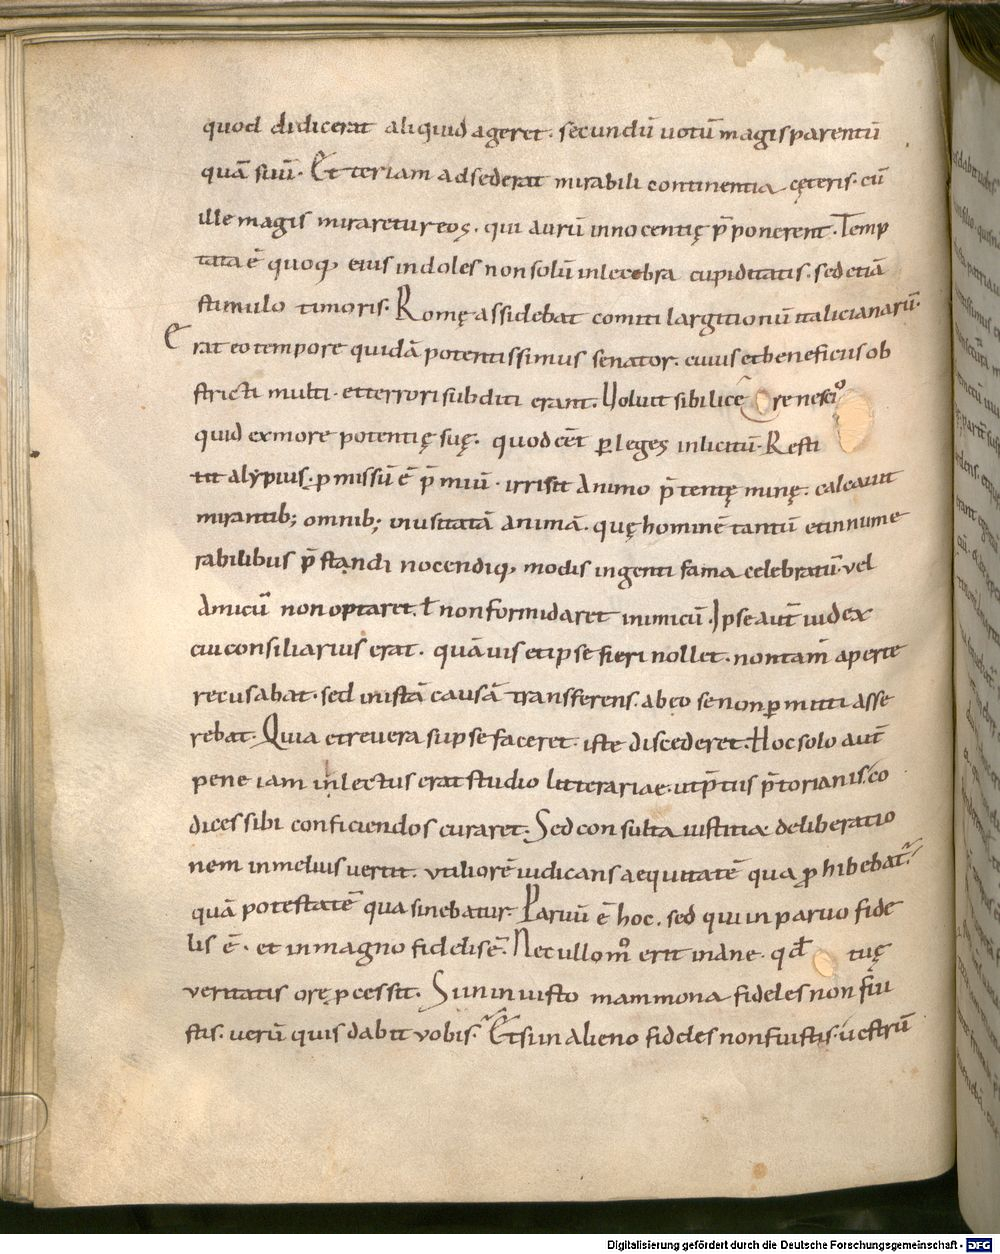 quod didicerat aliquid ageret. secundū uotū magis parentū
quā suū. Et ter iam adsederat mirabili continentia cęteris. cū
ille magis miraretur eos. qui aurū innocentię p̄ponerent. Temp
tata ē quoq; eius indoles non solū inlecebra cupiditatis. sed etiā
stimulo timoris. Romę assidebat comiti largitionū italicianarū.
Erat eo tempore quidā potentissimus senator. cuius et beneficiis ob
stricti multi. et terrori subditi erant. Uoluit sibi licē re nescio
quid ex more potentię suę. quod eēt ꝑ leges inlicitū. Resti
tit alypius. ꝓmissū ē p̄miū. irrisit animo. p̄tentę minę. calcauit
mirantib; omnib; inusitatā animā. quę hominē tantū et innume
rabilibus p̄standi nocendiq; modis ingenti fama celebratū. vel
amicū non optaret. ł non formidaret inimicū. Ipse aut̄ iudex
cui consiliarius erat. quāuis et ipse fieri nollet. non tam̄ aperte
recusabat. sed in istā causā transferens. ab eo se non ꝑmitti asse
rebat. Quia et reuera si ipse faceret. iste discederet. Hoc solo aut̄
pene iam inlectus erat studio litterariae. ut p̄tiis p̄torianis. co
dices sibi conficiendos curaret. Sed consulta iustitia deliberatio
nem in melius uertit. utiliorē iudicans aequitatē qua ꝓhibebat̄
quā potestatē qua sinebatur. Paruū ē hoc. sed qui in paruo fide
lis ē. et in magno fidelis ē. Nec ullo mō erit inane. qđ tuę
veritatis ore ꝓcessit. Si in iniusto mammona fideles non fui
stis. uerū quis dabit vobis. Et si in alieno fideles non fuistis. uestrū
Digitalisierung gefördert durch die Deutsche Forschungsgemeinschaft - DFG